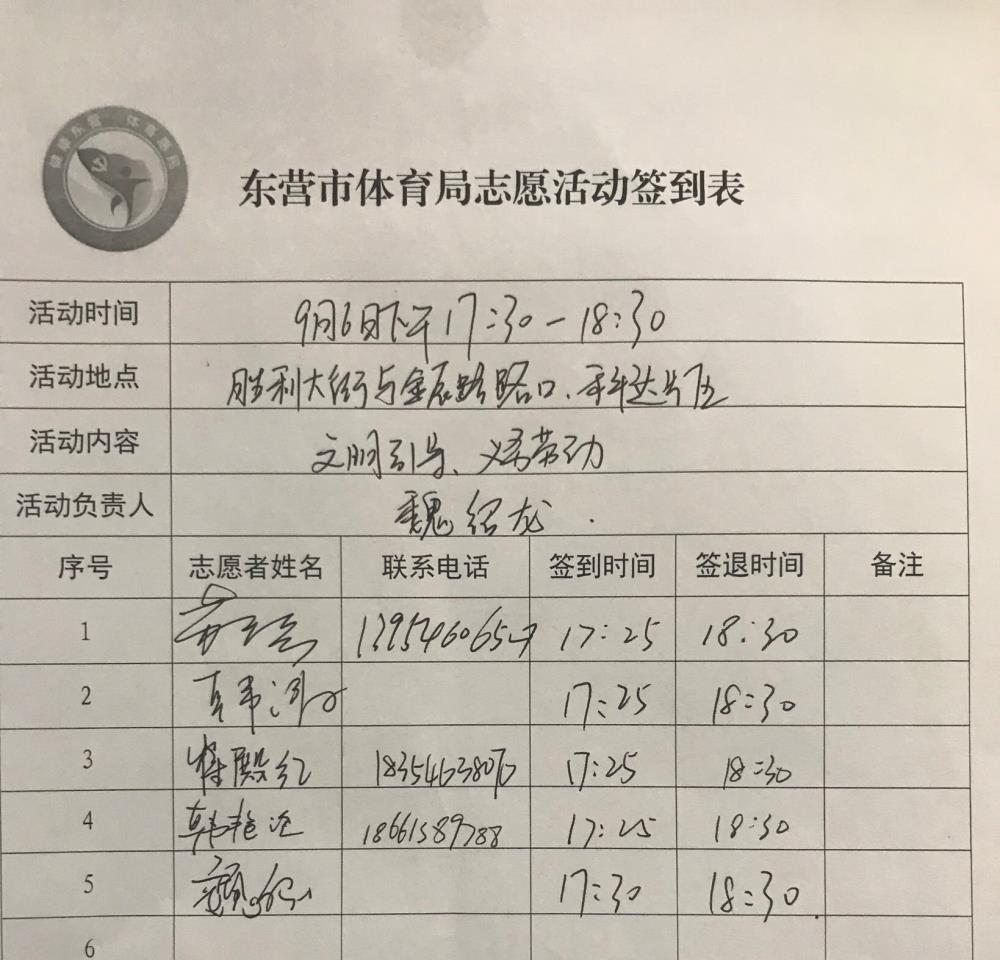 健康东营 体育惠民
东营市体育局志愿活动签到表
活动时间 9月6日下午17:30-18:30
活动地点 胜利大街与金辰路路口、科达片区
活动内容 文明引导、义务劳动
活动负责人 魏绍龙
序号 志愿者姓名 联系电话 签到时间 签退时间 备注
1 17:25 18:30
2 17:25 18:30
3 蒋殿红 17:25 18:30
4 韩艳 18661389788 17:25 18:30
5 17:30 18:30
6